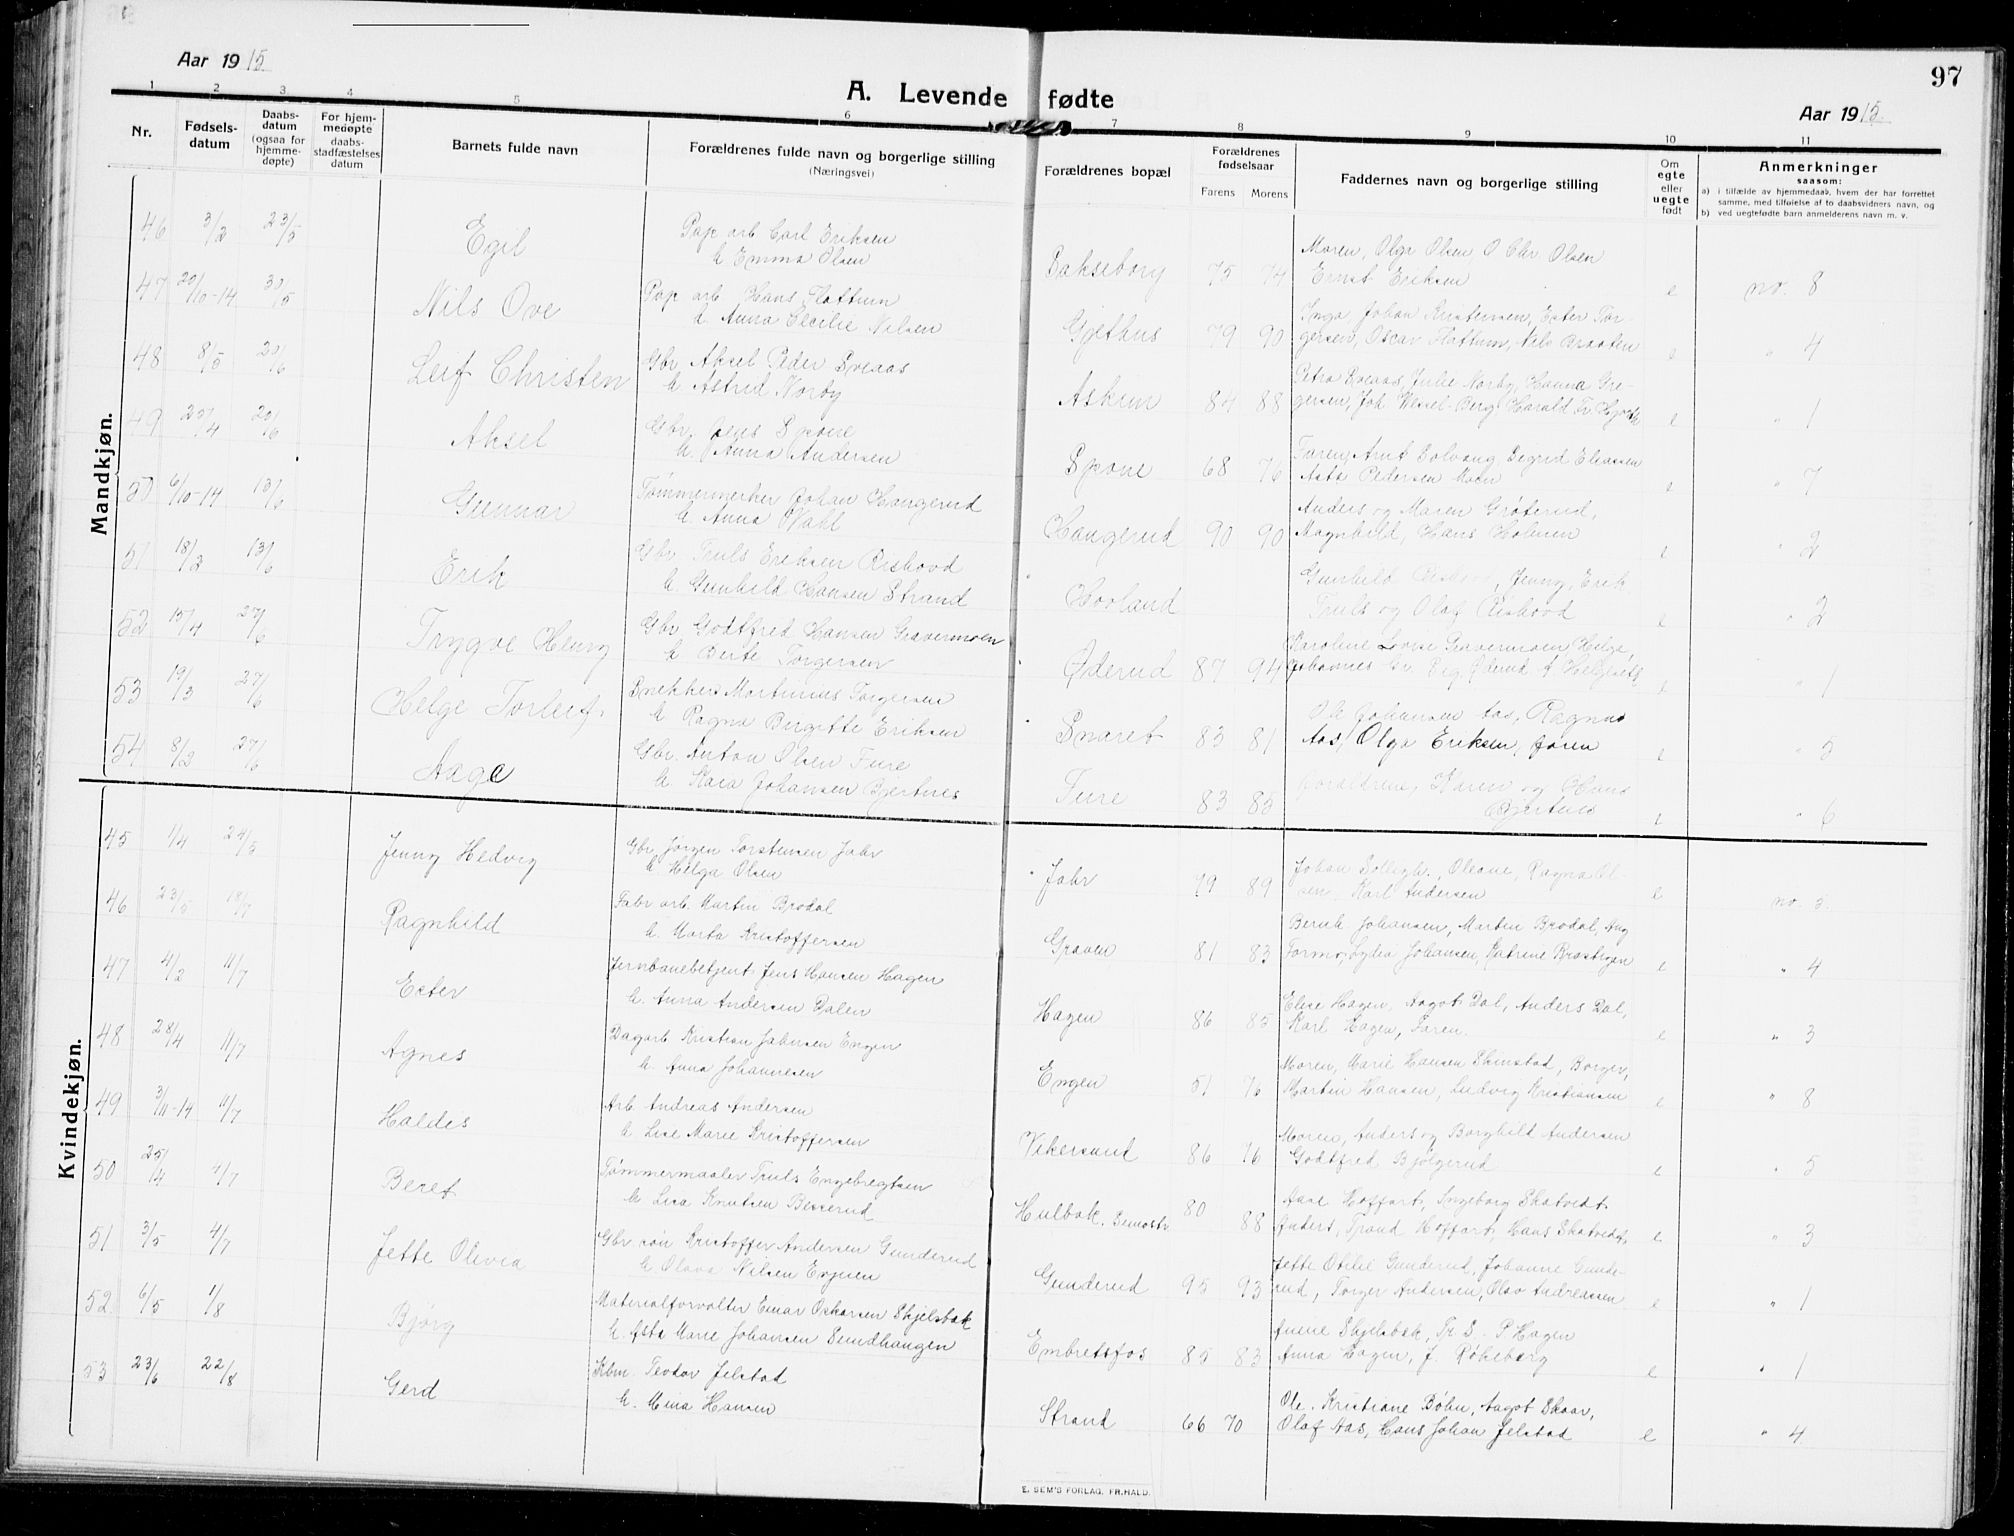 Aar 1915
97
A. Levende fødte
Aar 1915
1 2 3 4 5 6 7 8 9 10 11
Nr.
Fødsels-
datum
Daabs-
datum
(ogsaa for
hjemme-
døpte)
For hjem-
medøpte
daabs-
stadfæstelses
datum
Barnets fulde navn
Forældrenes fulde navn og borgerlige stilling
(Næringsvei)
Forældrenes bopæl
Forældrenes
fødselsaar
Farens Morens
Faddernes navn og borgerlige stilling
Om
egte
eller
uegte
født
Anmerkninger
saasom:
a) i tilfælde av hjemmedaab, hvem der har forrettet
samme, med tilføielse af to daabsvidners navn, og
b) ved uegtefødte barn anmelderens navn m. v.
Mandkjøn.
46 3/2 23/5 Egil Pap arb Carl Eriksen
h Emma Olsen
75 74 Moren, Olga Olsen O Chr. Olsen
Ernst Eriksen e no. 8
47 20/10-14 30/5 Nils Ove Pap arb Hans Flattum
h. Anna Cecilie Nilsen
Gjethus 79 90 Inga, Johan Kristensen, Ester Tor-
gersen, Oscar Flattum, Nils Braaten e " 4
48 8/5 20/6 Leif Christen Gbr Aksel Peder Sveaas
h Astrid Norby
Askim 84 88 Petra Sveaas, Julie Norby, Hanna Gre-
gersen, Joh Wessel-Berg, Harald Fr. e " 1
49 20/6 Aksel Gbr Jens Skone
h. Anna Andersen
68 76 Faren, Arnt Solvang, Sigrid Eliassen
Asta Pedersen Moen e " 7
50 6/10-14 13/6 Gunnar Tømmermerker Johan Haugerud
h. Anna Wahl
Haugerud 90 90 Anders og Maren Grøterud,
Magnhild, Hans Holmen e " 2
51 18/2 13/6 Erik Gbr Truls Eriksen Rishovd
h. Gunhild Hansen Strand
Hovland Gunhild Rishovd, Jenny, Erik
Truls og Olaf Rishovd e " 2
52 15/4 27/6 Trygve Henry Gbr Godtfred Hansen Gravermoen
h Berte Torgersen
Øderud 87 94 Karoline Lovise Gravermoen, Helge,
Johannes Øderud e " 1
53 19/3 27/6 Helge Torleif Snekker Martinius Torgersen
h Ragna Birgitte Eriksen
Snaret 83 81 Ole Johansen Aas, Ragna
Aas, Olga Eriksen, faren e " 5
54 8/2 27/6 Aage Gbr. Anton Olsen Fure
h. Kara Johansen Bjertnes
Fure 83 85 Forældrene, Karen og Hans
Bjertnes e " 6
Kvindekjøn.
45 1/4 24/5 Jenny Hedvig Gbr Jørgen Torstensen Jahr
h Helga Olsen
Jahr 79 89 Johan , Oleane, Ragna Ol-
sen, Karl Andersen e no. 3.
46 23/5 18/7 Ragnhild Fabr arb. Martin Brodal
h. Marta Kristoffersen
Graven 81 83 Bernh. Johansen, Martin Brodal, Aug
Formo, Lydia Johansen, Katrine e " 4
47 4/2 11/7 Ester Jernbanebetjent Jens Hansen Hagen
h. Anna Andersen Dalen
Hagen 86 85 Elise Hagen, Aagot Dal, Anders Dal,
Karl Hagen, Faren. e " 3
48 28/4 11/7 Agnes Dagarb Kristian Jakobsen Engen
h. Anna Johannesen
Engen 51 76 Moren, Marie Hansen Skinstad, Borger,
Martin Hansen, Ludvig Kristiansen e " 8
49 3/11-14 11/7 Haldis Arb. Andreas Andersen
h Lise Marie Kristoffersen
Vikersund 86 76 Moren, Anders og Borghild Andersen
Godtfred Bjølgerud e " 5
50 25/4 4/7 Beret Tømmermaaler Truls Engebregtsen
h Lisa Knutsen Besserud
Hulbak. 80 88 Aase Hoffart, Ingeborg Skatvedt
Anders, Trond Hoffart, Hans Skatvedt e " 3
51 3/5 4/7 Jette Olivia Gbr søn Kristoffer Andersen Gunderud
h Olava Nilsen Enguen
Gunderud 95 93 Jette Otilie Gunderud, Johanne Gunde-
rud, Torger Andersen, Olav Andreassen e " 1
52 6/5 1/8 Bjørg Materialforvalter Einar Oskarsen Skjelsbæk
h. Asta Marie Johansen Sundhaugen
Embretsfos 85 83 Anene Skjelsbæk, P Hagen
Anna Hagen, J. Røkeberg e " 1
53 23/6 22/8 Gerd Kbm Teodor Jelstad
h. Mina Hansen
Strand 66 70 Ole. Kristiane Bøhn, Aagot Skaar,
Olaf Aas, Hans Johan Jelstad e " 4
E. SEM'S FORLAG. FR.HALD.